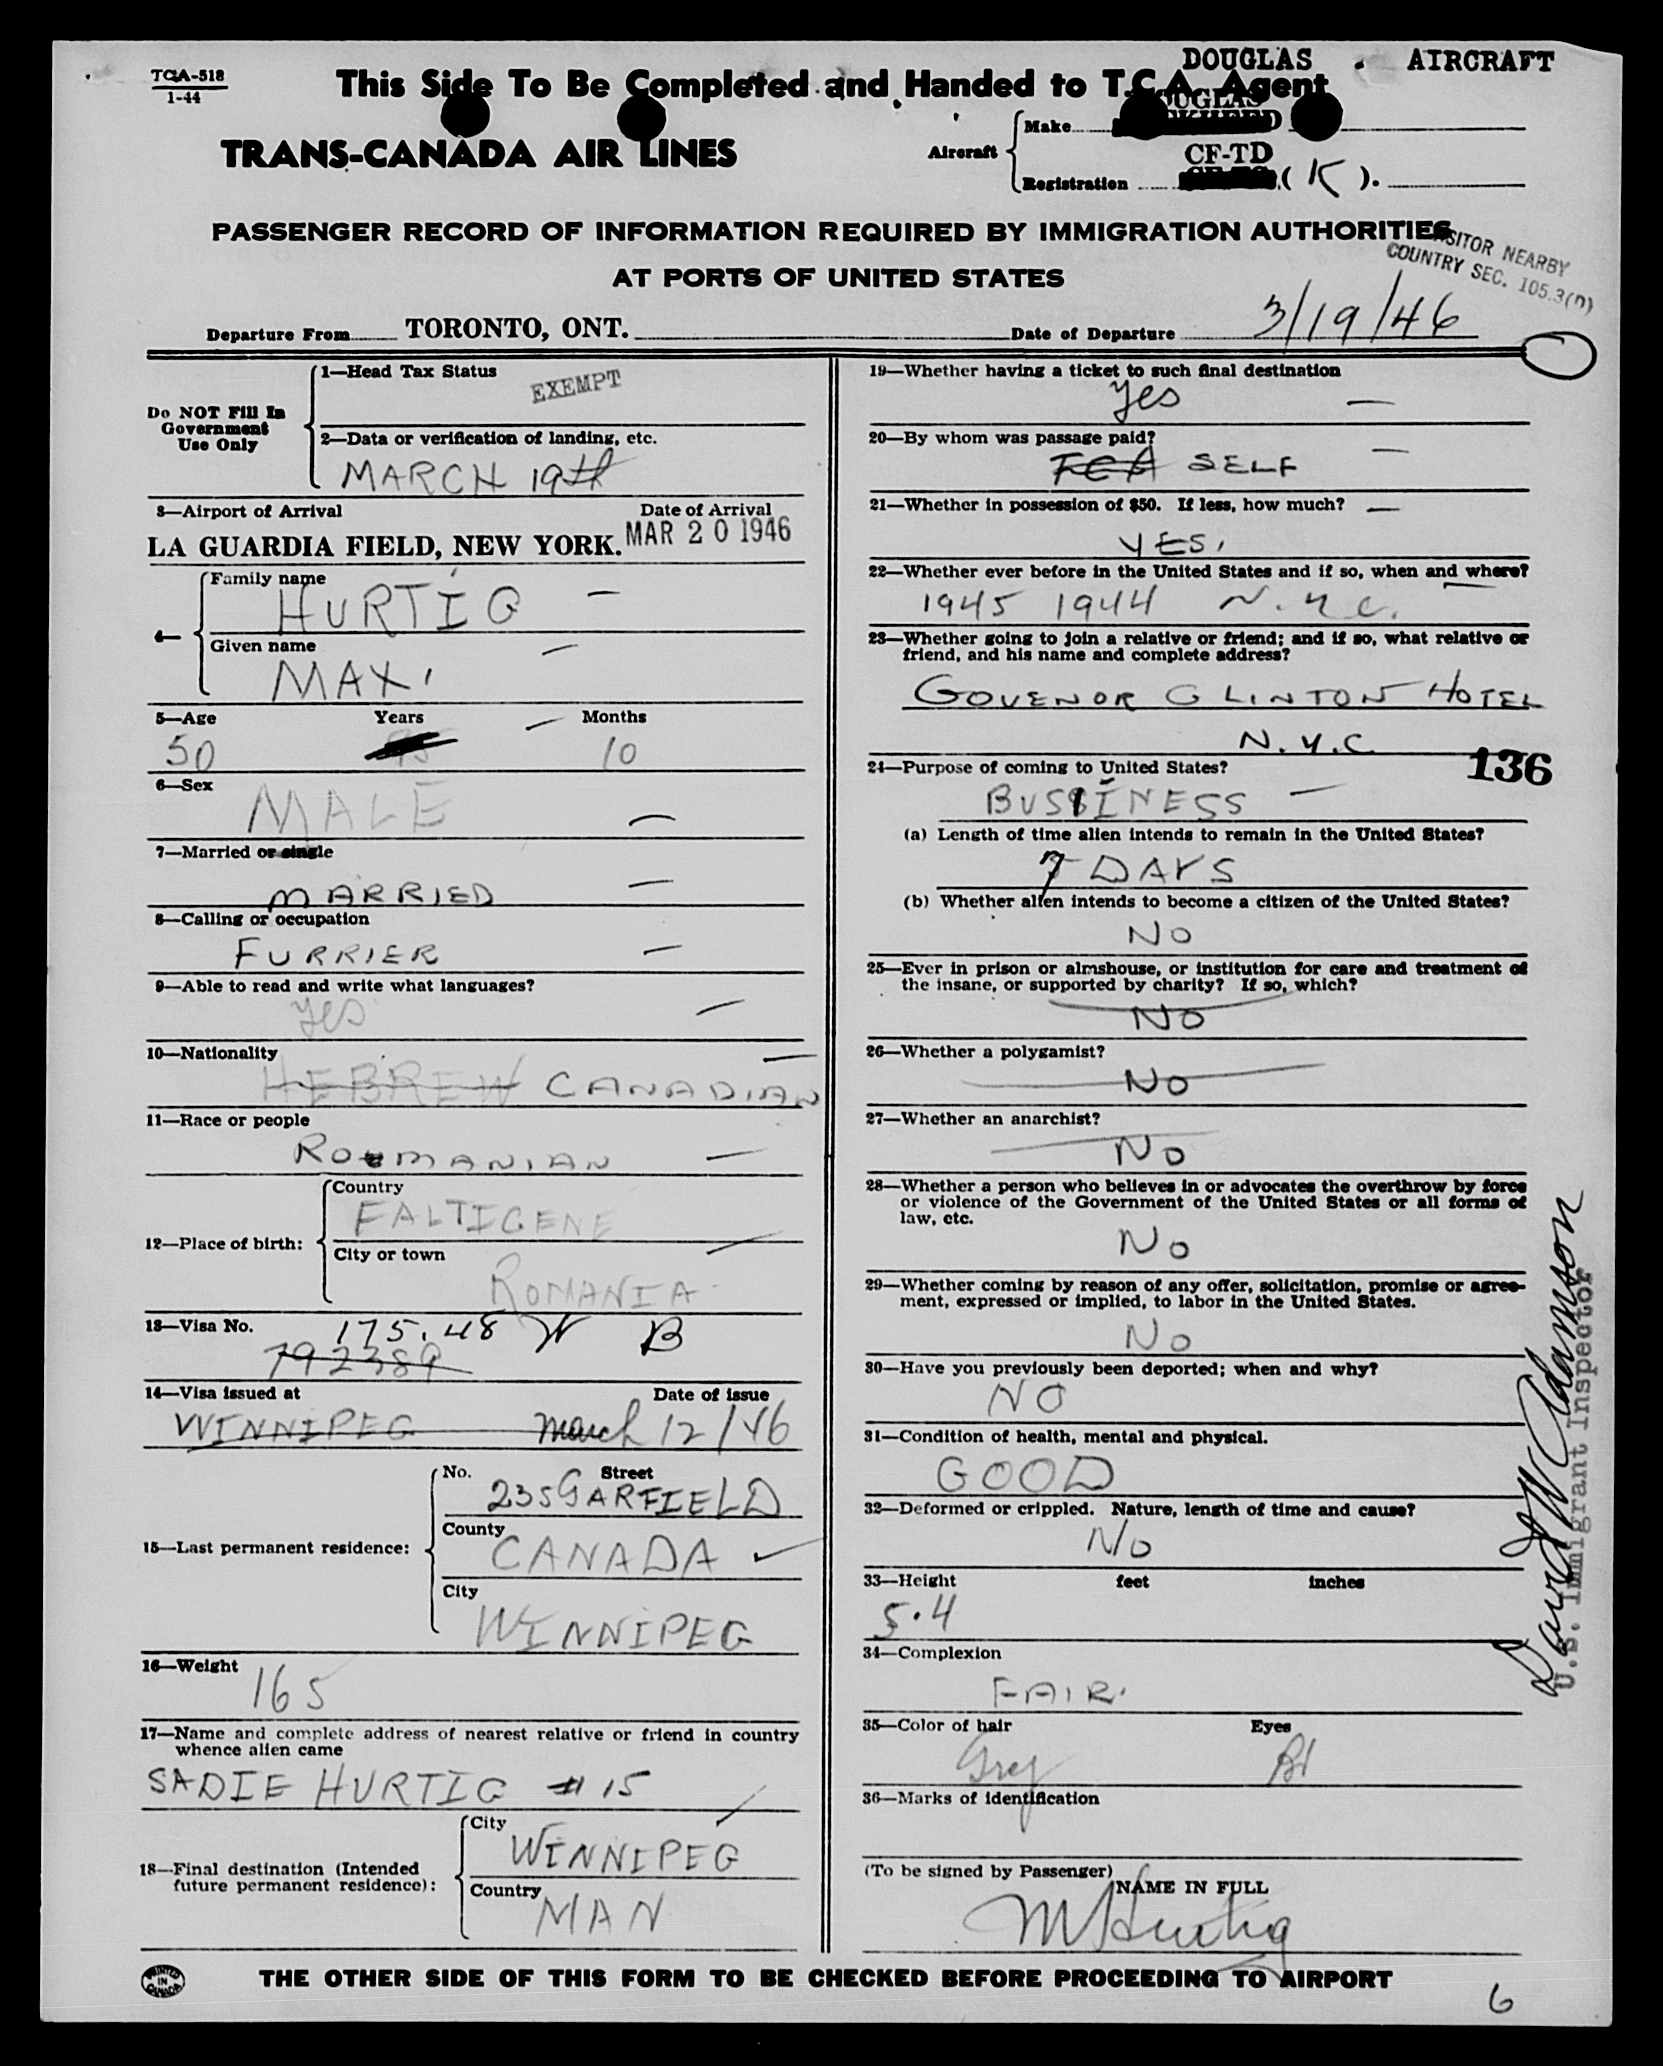 TCA-518
1-44
This Side To Be Completed and Handed to T.C.A. Agent
DOUGLAS AIRCRAFT
TRANS-CANADA AIR LINES
Aircraft
Make
DOUGLAS
Registration
CF-TD
(K).
PASSENGER RECORD OF INFORMATION REQUIRED BY IMMIGRATION AUTHORITIES
AT PORTS OF UNITED STATES
VISITOR NEARBY
COUNTRY SEC. 105.3(D)
Departure From TORONTO, ONT.
Date of Departure 3/19/46
Do NOT Fill In
Government
Use Only
1—Head Tax Status
EXEMPT
2—Data or verification of landing, etc.
MARCH 19th
3—Airport of Arrival Date of Arrival
LA GUARDIA FIELD, NEW YORK. MAR 20 1946
4—
Family name
HURTIG —
Given name
MAX —
5—Age Years — Months
50 10
6—Sex
MALE —
7—Married or single
MARRIED —
8—Calling or occupation
FURRIER —
9—Able to read and write what languages?
yes —
10—Nationality —
HEBREW CANADIAN
11—Race or people
ROUMANIAN —
12—Place of birth:
Country
FALTICENE
City or town
ROMANIA
13—Visa No. 175.48 W B
792389
14—Visa issued at Date of issue
WINNIPEG March 12/46
15—Last permanent residence:
No. Street
235 GARFIELD
County
CANADA ✓
City
WINNIPEG
16—Weight
165
17—Name and complete address of nearest relative or friend in country
whence alien came
SADIE HURTIG # 15
18—Final destination (Intended
future permanent residence):
City
WINNIPEG
Country
MAN
19—Whether having a ticket to such final destination
yes —
20—By whom was passage paid?
TCA SELF —
21—Whether in possession of $50. If less, how much? —
YES,
22—Whether ever before in the United States and if so, when and where?
1945 1944 N.Y.C.
23—Whether going to join a relative or friend; and if so, what relative or
friend, and his name and complete address?
GOVENOR CLINTON HOTEL
N.Y.C
136
24—Purpose of coming to United States?
BUSSINESS —
(a) Length of time alien intends to remain in the United States?
7 DAYS
(b) Whether alien intends to become a citizen of the United States?
NO
25—Ever in prison or almshouse, or institution for care and treatment of
the insane, or supported by charity? If so, which?
NO
26—Whether a polygamist?
NO
27—Whether an anarchist?
NO
28—Whether a person who believes in or advocates the overthrow by force
or violence of the Government of the United States or all forms of
law, etc.
NO
29—Whether coming by reason of any offer, solicitation, promise or agree-
ment, expressed or implied, to labor in the United States.
NO
30—Have you previously been deported; when and why?
NO
31—Condition of health, mental and physical.
GOOD
32—Deformed or crippled. Nature, length of time and cause?
No
33—Height feet inches
5.4
34—Complexion
FAIR.
35—Color of hair Eyes
Grey Bl
36—Marks of identification
(To be signed by Passenger)
NAME IN FULL
M Hurtig
David W Adamson
U.S. Immigrant Inspector
PRINTED
IN
CANADA
THE OTHER SIDE OF THIS FORM TO BE CHECKED BEFORE PROCEEDING TO AIRPORT
6